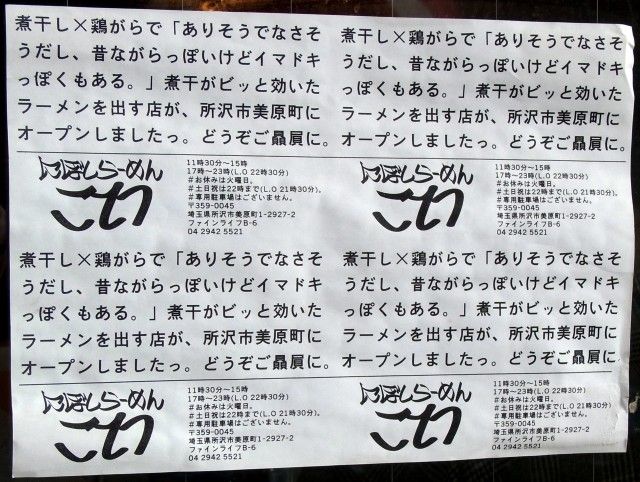 煮干し×鶏がらで「ありそうでなさそ
うだし、昔ながらっぽいけどイマドキ
っぽくもある。」煮干がビッと効いた
ラーメンを出す店が、所沢市美原町に
オープンしましたっ。どうぞご贔屓に。
にぼしらーめん
11時30分〜15時
17時〜23時(L.O 22時30分)
#お休みは火曜日。
#土日祝は22時まで(L.O 21時30分)。
#専用駐車場はございません。
〒359-0045
埼玉県所沢市美原町1-2927-2
ファインライフB-6
04 2942 5521
煮干し×鶏がらで「ありそうでなさそ
うだし、昔ながらっぽいけどイマドキ
っぽくもある。」煮干がビッと効いた
ラーメンを出す店が、所沢市美原町に
オープンしましたっ。どうぞご贔屓に。
にぼしらーめん
11時30分〜15時
17時〜23時(L.O 22時30分)
#お休みは火曜日。
#土日祝は22時まで(L.O 21時30分)。
#専用駐車場はございません。
〒359-0045
埼玉県所沢市美原町1-2927-2
ファインライフB-6
04 2942 5521
煮干し×鶏がらで「ありそうでなさそ
うだし、昔ながらっぽいけどイマドキ
っぽくもある。」煮干がビッと効いた
ラーメンを出す店が、所沢市美原町に
オープンしましたっ。どうぞご贔屓に。
にぼしらーめん
11時30分〜15時
17時〜23時(L.O 22時30分)
#お休みは火曜日。
#土日祝は22時まで(L.O 21時30分)。
#専用駐車場はございません。
〒359-0045
埼玉県所沢市美原町1-2927-2
ファインライフB-6
04 2942 5521
煮干し×鶏がらで「ありそうでなさそ
うだし、昔ながらっぽいけどイマドキ
っぽくもある。」煮干がビッと効いた
ラーメンを出す店が、所沢市美原町に
オープンしましたっ。どうぞご贔屓に
にぼしらーめん
11時30分〜15時
17時〜23時(L.O 22時30分)
#お休みは火曜日。
#土日祝は22時まで(L.O 21時30分)。
#専用駐車場はございません。
〒359-0045
埼玉県所沢市美原町1-2927-2
ファインライフB-6
04 2942 5521